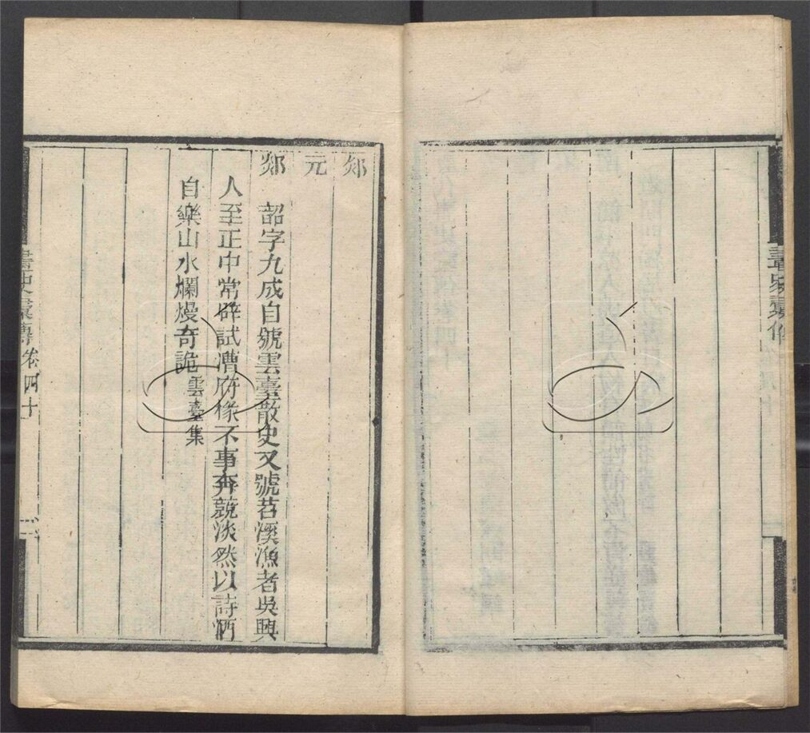 畫史彙傳
郯
元
郯 韶字九成自號雲臺散史又號苕溪漁者吳興
人至正中常辟試漕府掾不事奔競淡然以詩酒
自樂山水爛熳奇詭雲臺集
畫史彙傳卷四十